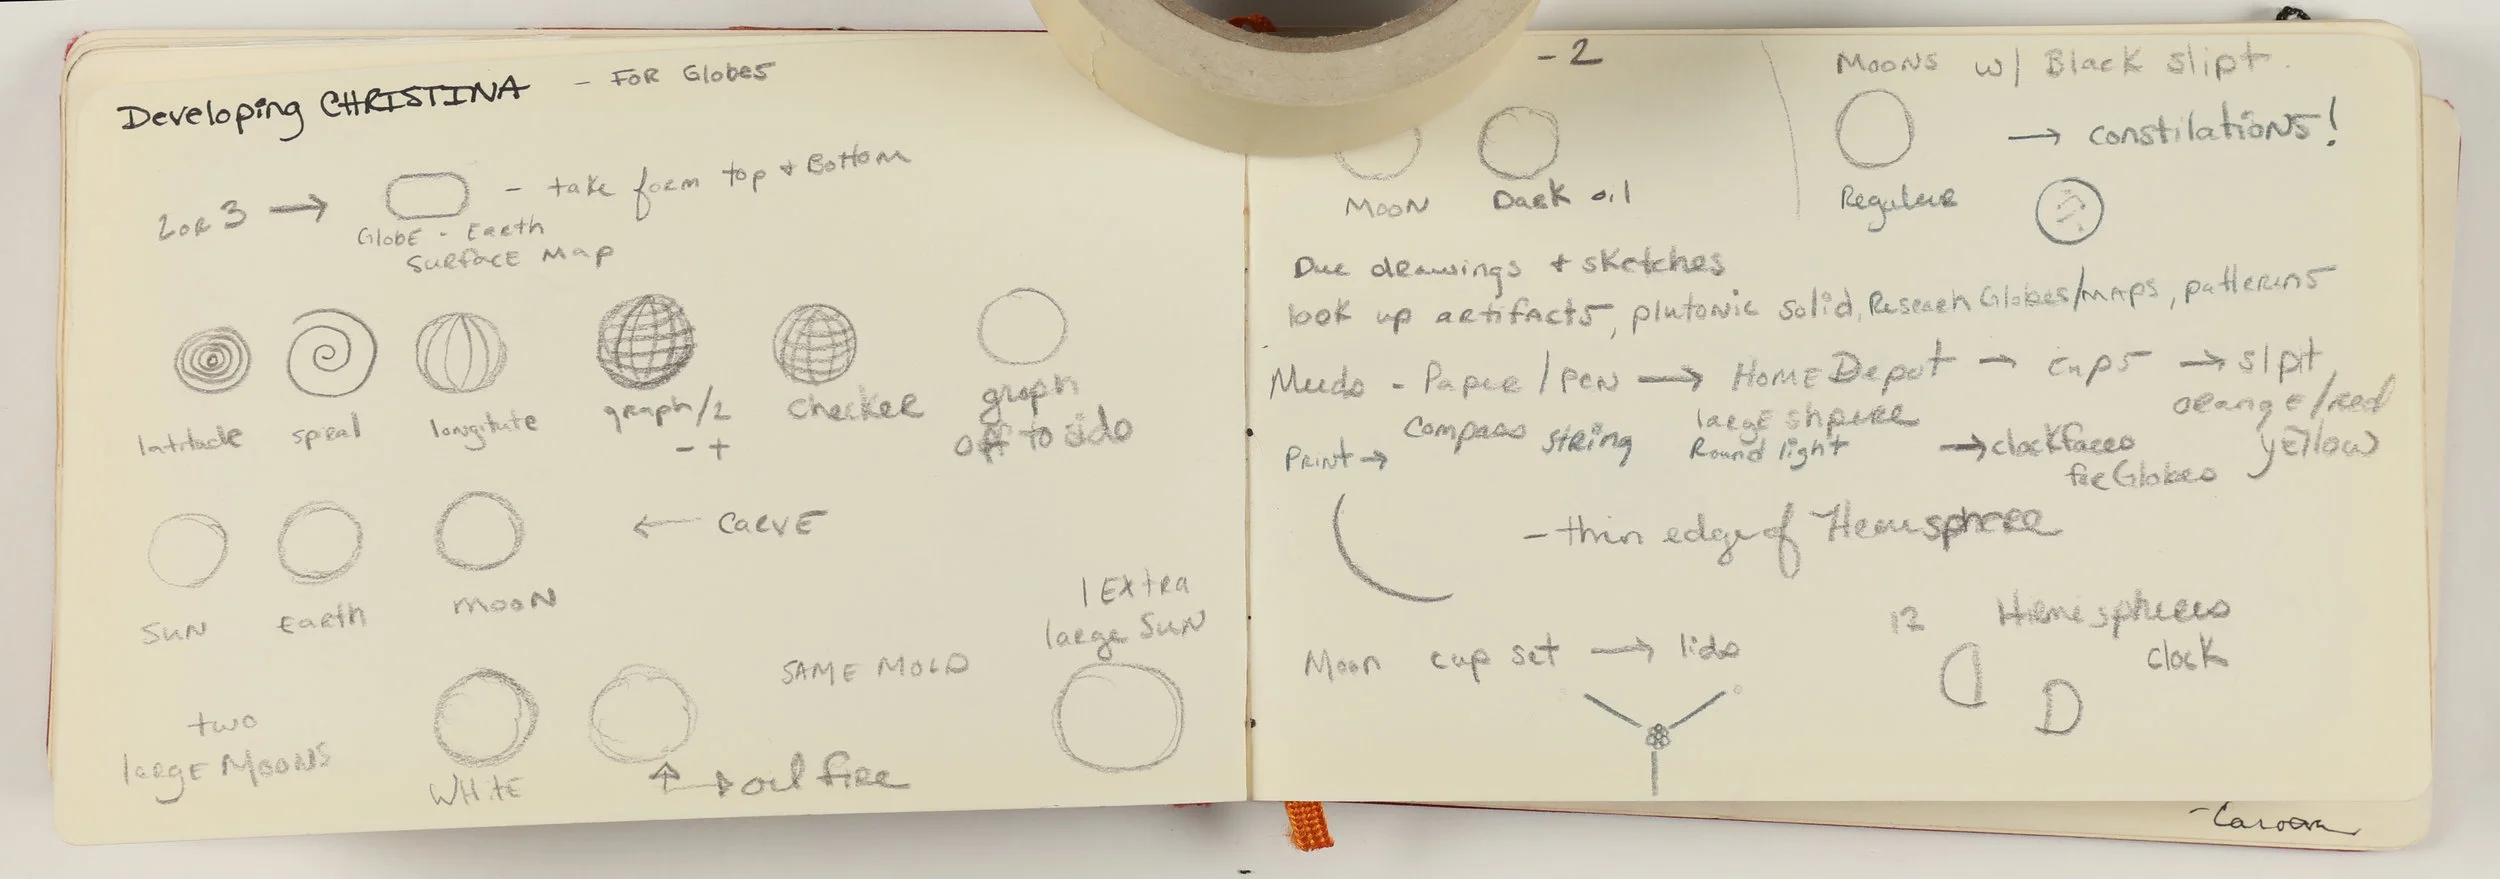 Developing CHRISTINA - FOR GlobES
2 or 3 → - take form top + Bottom
GlobE - Earth
SurfacE Map
latitude spiral longitute graph/2 checker graph
- + off to side
← CarvE
Sun Earth moon
1 Extra
large Sun
SAME MOLD
two
largE Moons
WHitE → oil fire
- 2
Moon Dark oil
Moons w/ Black slipt.
→ constilations!
Regulare
Due drawings + sketches
look up artifacts, plutonic solid, Reseach Globes/maps, patterens
Meeds - Paper / pen → Home Depot → cups → slpit
orangE/red
yEllow
compass string largE shpere
Print → Round light → clockfaces
for Globes
- thin edge of Hemisphere
12 Hemispheres
clock
Moon cup set → lids